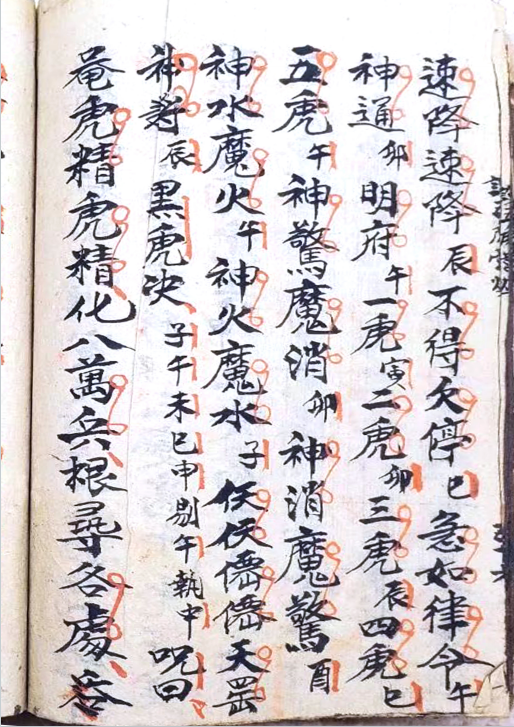 速降速降辰不得欠停巳急如律令午
神通卯明府午一虎寅二虎卯三虎辰四虎巳
五虎午神驚魔消卯神消魔驚酉
神水魔火午神火魔水子仸仸僊僊天罡
神辰黑虎决子午未巳申别午執中咒曰
奄虎精虎精化八萬兵根尋各處吞